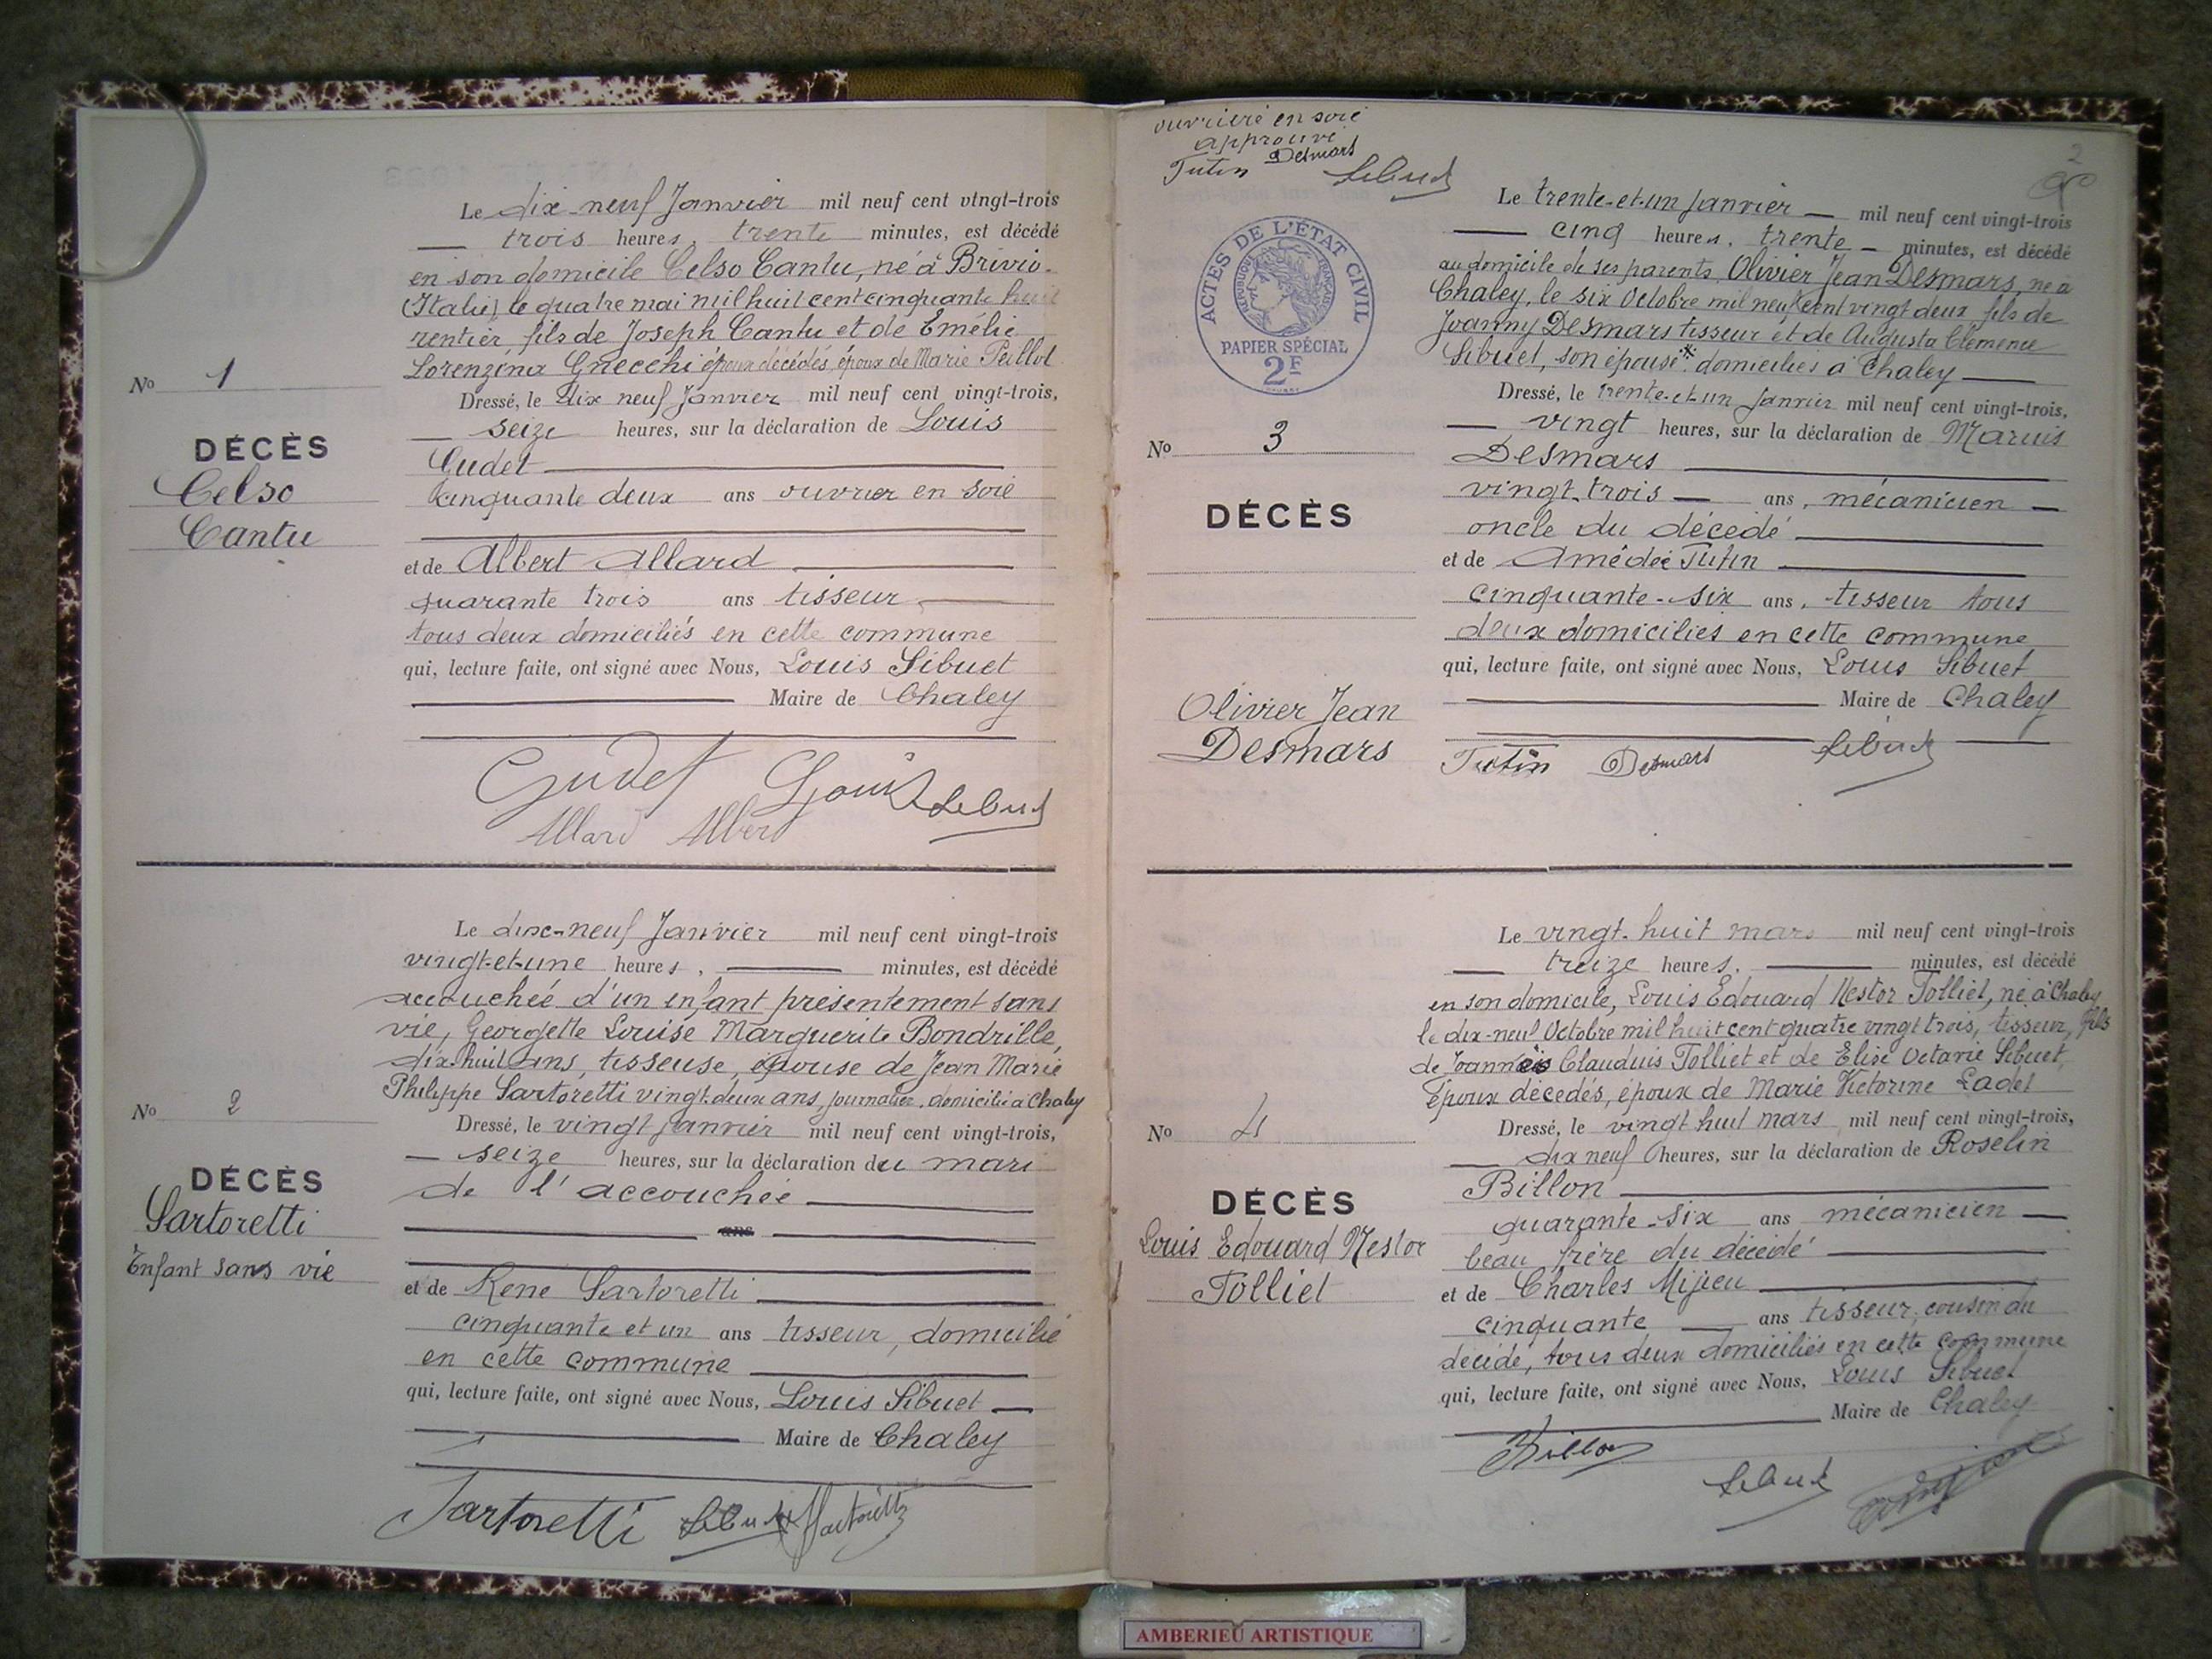 No 1
DÉCÈS
Celso
Cantu
Le dix-neuf Janvier mil neuf cent vingt-trois
trois heures, trente minutes, est décédé
en son domicile Celso Cantu, né à Brivio
(Italie), le quatre mai mil huit cent cinquante huit
rentier, fils de Joseph Cantu et de Emélie
Lorenzina Gnecchi époux décédés, époux de Marie Peillot
Dressé, le dix neuf Janvier mil neuf cent vingt-trois,
seize heures, sur la déclaration de Louis
Gudet
cinquante deux ans ouvrier en soie
et de Albert Allard
quarante trois ans tisseur
tous deux domiciliés en cette commune
qui, lecture faite, ont signé avec Nous, Louis Sibuet
Maire de Chaley
Gudet Louis Sibuet
Allard Albert
No 2
DÉCÈS
Sartoretti
Enfant sans vie
Le dix-neuf Janvier mil neuf cent vingt-trois
vingt-et-une heures, minutes, est décédé
accouchée d'un enfant présentement sans
vie, Georgette Louise Marguerite Bondrille,
dix-huit ans, tisseuse, épouse de Jean Marie
Philippe Sartoretti vingt-deux ans, journalier, domicilié à Chaley
Dressé, le vingt Janvier mil neuf cent vingt-trois,
seize heures, sur la déclaration du mari
de l'accouchée
ans
et de Rene Sartoretti
cinquante et un ans tisseur, domicilié
en cette commune
qui, lecture faite, ont signé avec Nous, Louis Sibuet
Maire de Chaley
Sartoretti Sibuet Sartoretti
ouvrière en soie
approuvé
Tutin Desmars Sibuet
2
ACTES DE L'ÉTAT CIVIL
RÉPUBLIQUE FRANÇAISE
PAPIER SPÉCIAL
2F
No 3
DÉCÈS
Olivier Jean
Desmars
Le trente-et-un Janvier mil neuf cent vingt-trois
cinq heures, trente minutes, est décédé
au domicile de ses parents, Olivier Jean Desmars, né à
Chaley, le six Octobre mil neuf cent vingt deux fils de
Joanny Desmars tisseur et de Augusta Clémence
Sibuet, son épouse * domiciliés à Chaley
Dressé, le trente-et-un Janvier mil neuf cent vingt-trois,
vingt heures, sur la déclaration de Marius
Desmars
vingt-trois ans, mécanicien
oncle du décédé
et de Amédée Tutin
cinquante-six ans, tisseur tous
deux domiciliés en cette commune
qui, lecture faite, ont signé avec Nous, Louis Sibuet
Maire de Chaley
Tutin Desmars Sibuet
No 4
DÉCÈS
Louis Edouard Nestor
Tolliet
Le vingt-huit mars mil neuf cent vingt-trois
treize heures, minutes, est décédé
en son domicile, Louis Edouard Nestor Tolliet, né à Chaley
le dix-neuf Octobre mil huit cent quatre vingt trois, tisseur, fils
de Joannès Claudius Tolliet et de Elise Octavie Sibuet,
époux décédés, époux de Marie Victorine Ladet
Dressé, le vingt huit mars mil neuf cent vingt-trois,
dix neuf heures, sur la déclaration de Roselin
Billon
quarante-six ans mécanicien
beau frère du décédé
et de Charles Mijieu
cinquante ans tisseur, cousin du
décédé, tous deux domiciliés en cette commune
qui, lecture faite, ont signé avec Nous, Louis Sibuet
Maire de Chaley
Billon Sibuet
AMBERIEU ARTISTIQUE